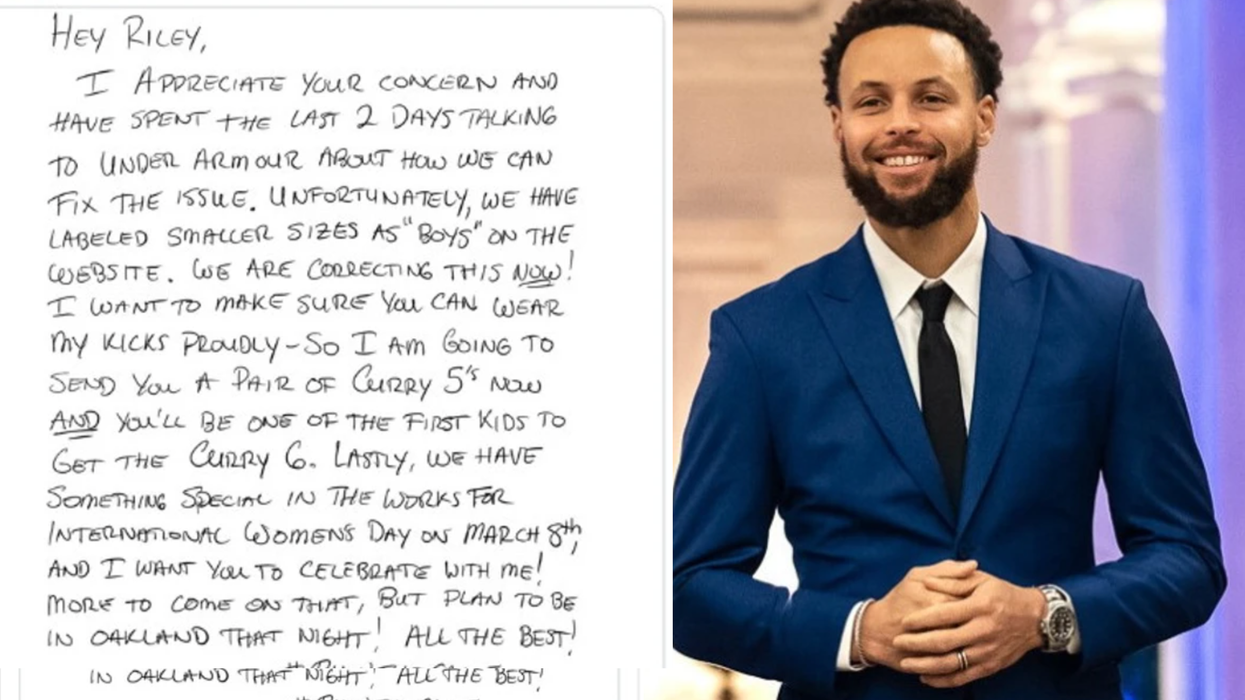 HEY RILEY,
I APPRECIATE YOUR CONCERN AND
HAVE SPENT THE LAST 2 DAYS TALKING
TO UNDER ARMOUR ABOUT HOW WE CAN
FIX THE ISSUE. UNFORTUNATELY, WE HAVE
LABELED SMALLER SIZES AS "BOYS" ON THE
WEBSITE. WE ARE CORRECTING THIS NOW!
I WANT TO MAKE SURE YOU CAN WEAR
MY KICKS PROUDLY - SO I AM GOING TO
SEND YOU A PAIR OF CURRY 5'S NOW
AND YOU'LL BE ONE OF THE FIRST KIDS TO
GET THE CURRY 6. LASTLY, WE HAVE
SOMETHING SPECIAL IN THE WORKS FOR
INTERNATIONAL WOMENS DAY ON MARCH 8th,
AND I WANT YOU TO CELEBRATE WITH ME!
MORE TO COME ON THAT, BUT PLAN TO BE
IN OAKLAND THAT NIGHT! ALL THE BEST!
IN OAKLAND THAT NIGHT! ALL THE BEST!